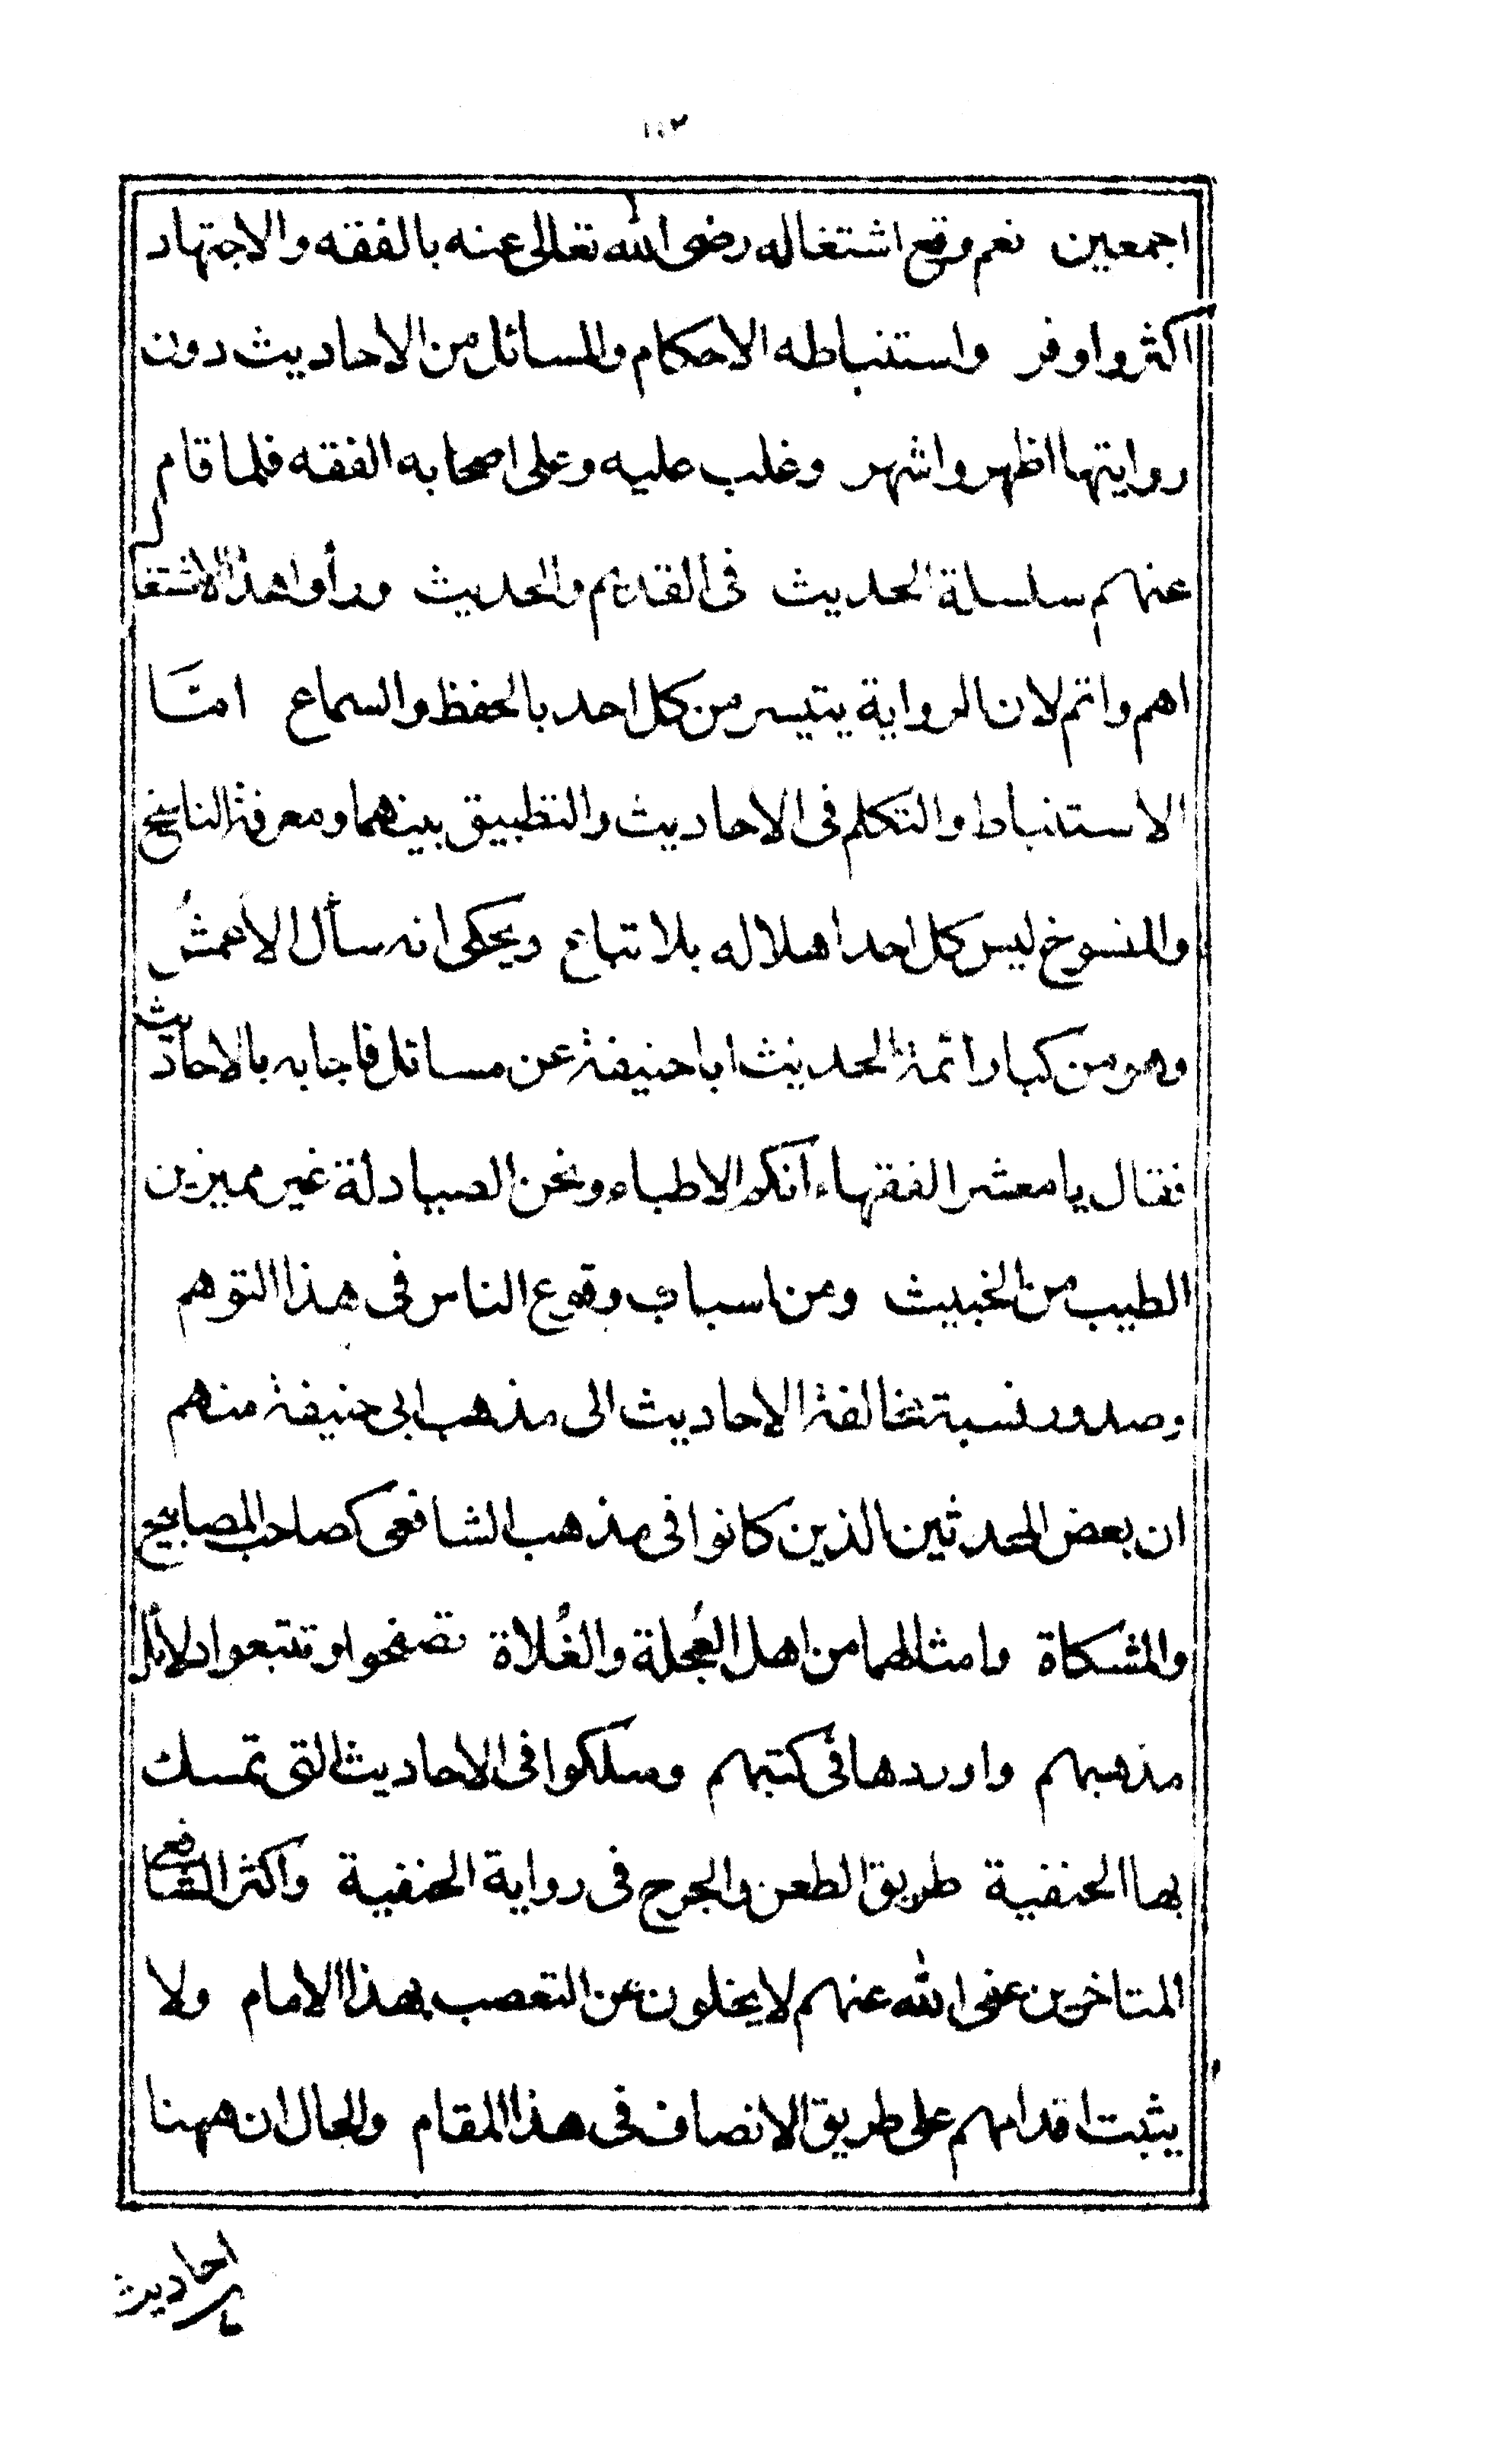 ١٠٢
اجمعين نعم وقع اشتغاله رضى الله تعالى عنه بالفقه والاجتهاد
اكثر واوفر واستنباطه الاحكام والمسائل من الاحاديث دون
روايتها اظهر واشهر وغلب عليه وعلى اصحابه الفقه فلما قام
عنهم سلسلة الحديث فى القديم والحديث ورأوا هذا الاشتغال
اهم واتم لان الرواية يتيسر من كل احد بالحفظ والسماع امّا
الاستنباط والتكلم فى الاحاديث والتطبيق بينهما ومعرفة الناسخ
والمنسوخ ليس كل احد اهلا له بلا تباع ويحكى انه سأل الأعمشُ
وهو من كبار ائمة الحديث ابا حنيفة عن مسائل فاجابه بالاحاديث
فقال يا معشر الفقهاء انكم الاطباء ونحن الصيادلة غير مميزين
الطيب من الخبيث ومن اسباب وقوع الناس فى هذا التوهم
وصدور نسبة مخالفة الاحاديث الى مذهب ابى حنيفة منهم
ان بعض المحدثين الذين كانوا فى مذهب الشافعى كصاحب المصابيح
والمشكاة وامثالهما من اهل العُجلة والغُلاة تصفحوا وتتبعوا دلائل
مذهبهم واوردها فى كتبهم وسلكوا فى الاحاديث التى تمسك
بها الحنفية طريق الطعن والجرح فى رواية الحنفية واكثر الشافعية
المتاخرين عفى الله عنهم لا يخلون عن التعصب بهذا الامام ولا
يثبت اقدامهم على طريق الانصاف فى هذا المقام والحال ان ههنا
احاديث